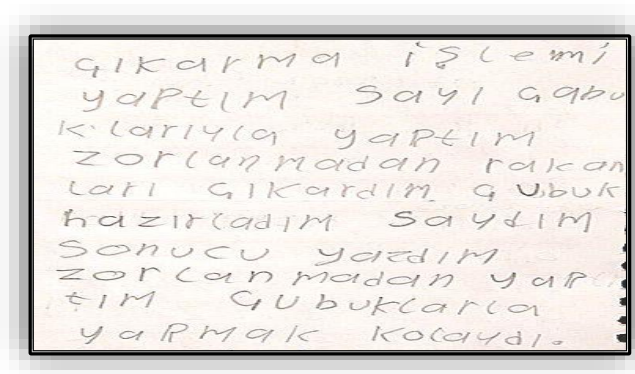 çıkarma işlemi
yaptım sayı çabu
k.larıyla yaptım
zorlanmadan rakam
ları çıkardım çubuk
hazırladım saydım
sonucu yazdım
zorlanmadan yap
tım çubuklarla
yapmak kolaydı.